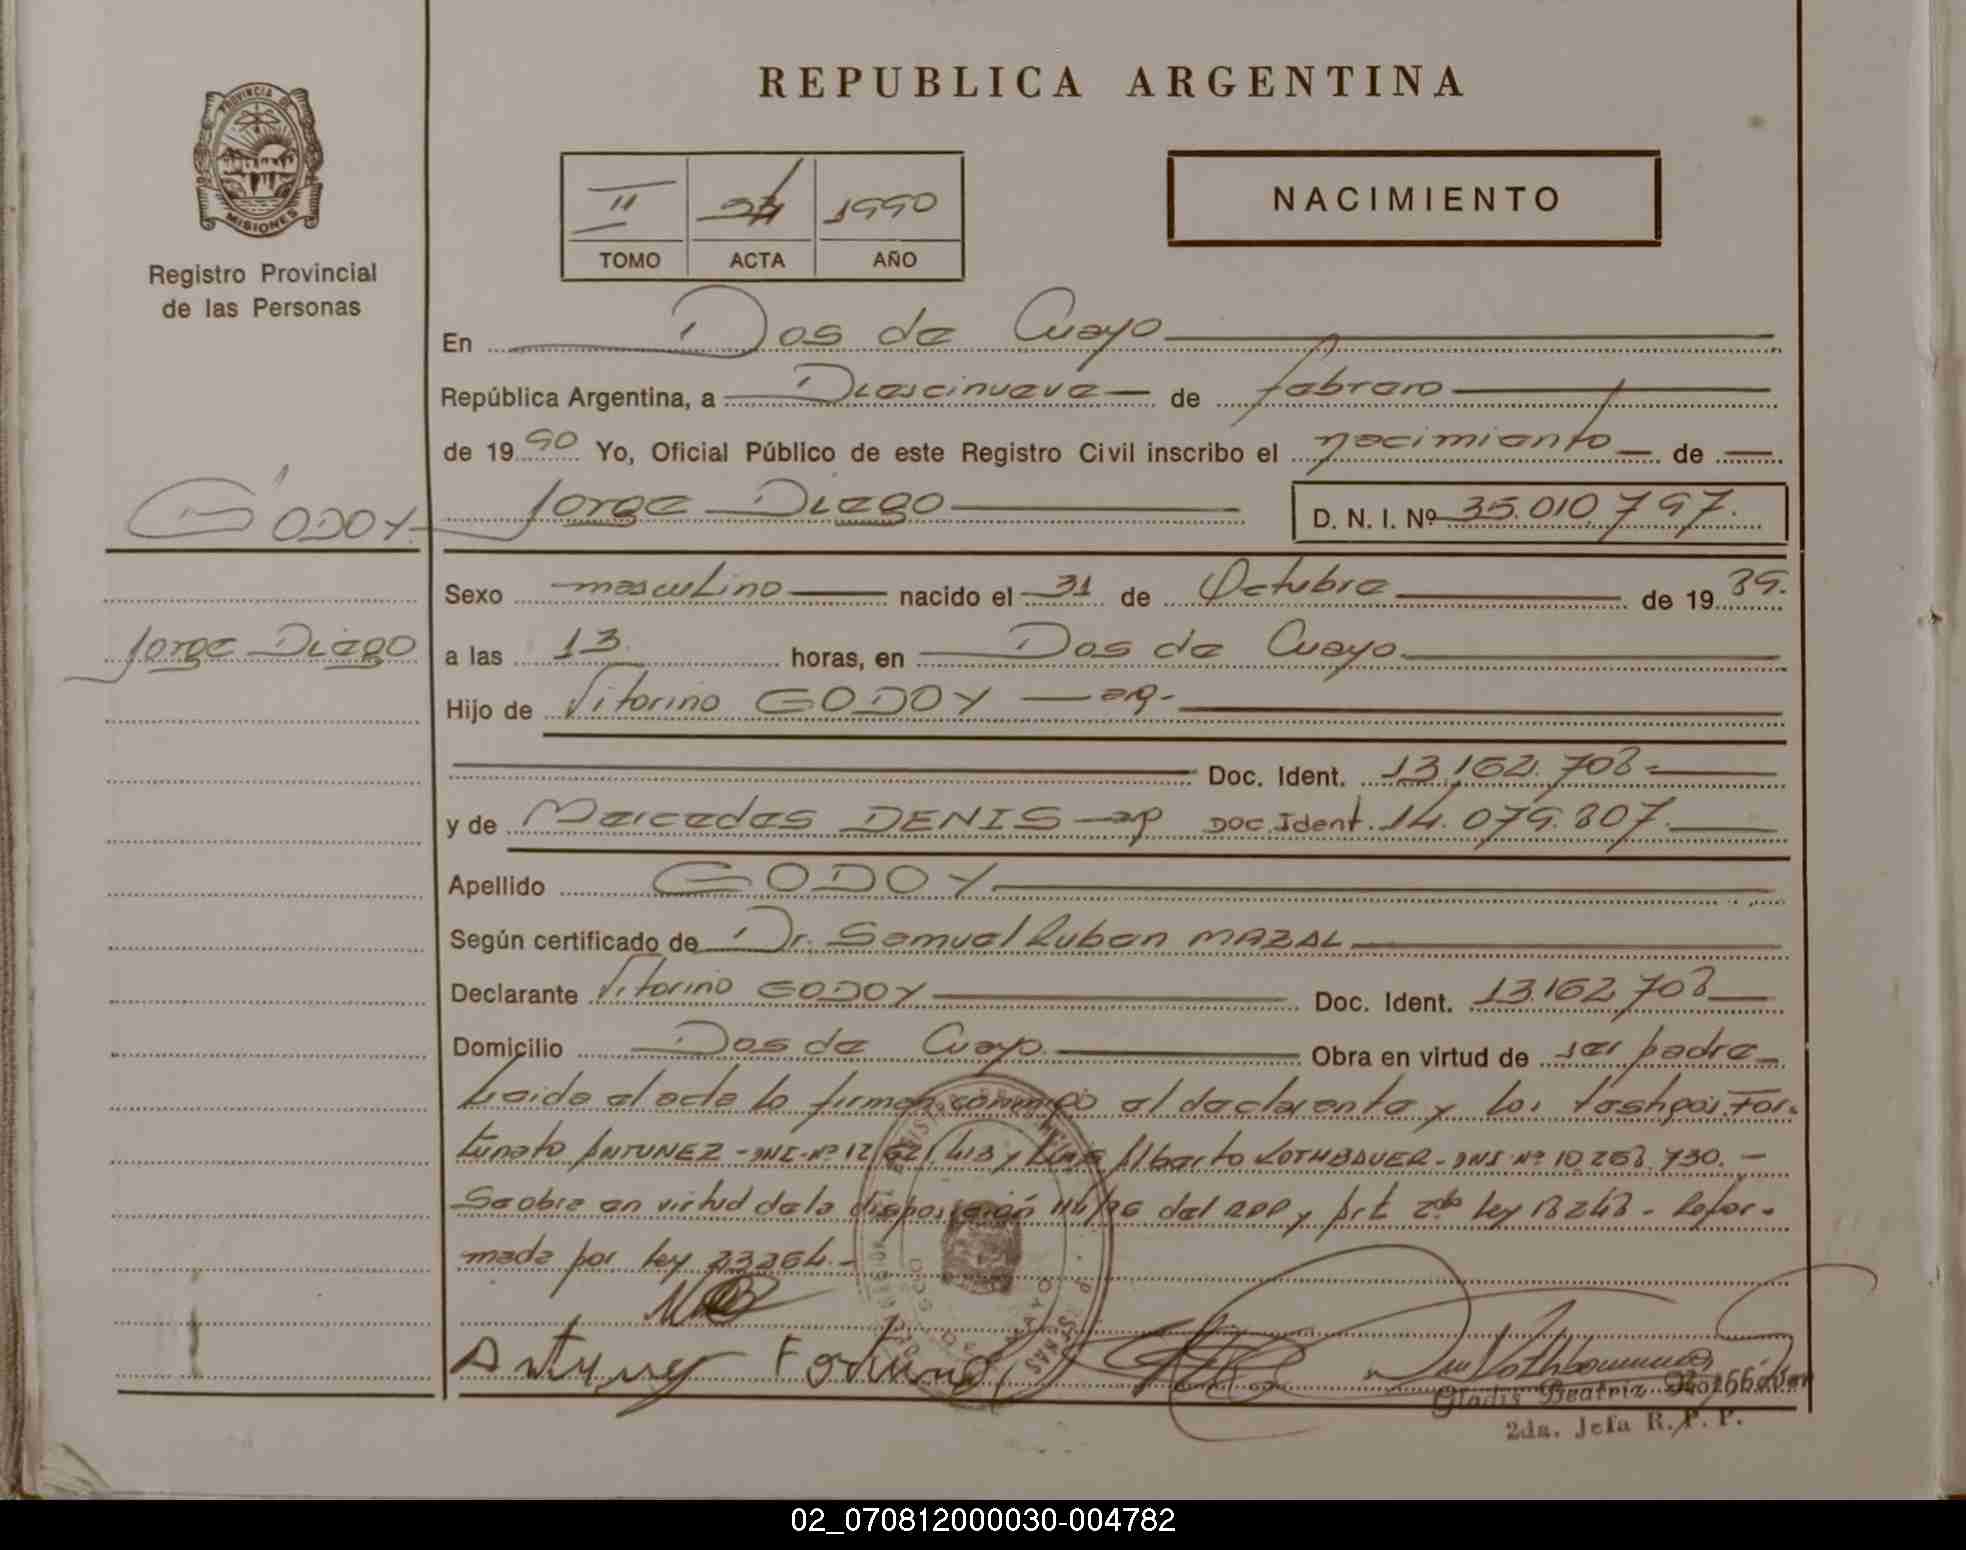 REPUBLICA ARGENTINA
PROVINCIA DE
MISIONES
Registro Provincial
de las Personas
II 1990
TOMO ACTA AÑO
NACIMIENTO
En Dos de Mayo
República Argentina, a Diescinueve de febrero
de 1990 Yo, Oficial Público de este Registro Civil inscribo el nacimiento de
GODOY Jorge Diego D. N. I. Nº 35.010.797.
Sexo masculino nacido el 31 de Octubre de 1989.
Jorge Diego
a las 13 horas, en Dos de Mayo
Hijo de Vitorino GODOY arg-
Doc. Ident. 13.162.708-
y de Mercedes DENIS Doc. Ident. 14.079.807.
Apellido GODOY
Según certificado de Dr. Samuel Ruben MAZAL
Declarante Vitorino GODOY Doc. Ident. 13.162.708
Domicilio Dos de Mayo Obra en virtud de ser padre
Leida el acta la firman conmigo el declarante y los testigos For-
tunato ANTUNEZ - DNI-Nº 12 413 y Luis Alberto ROTHBAUER - DNI Nº 10.268.730. -
Se obra en virtud de la disposición del RPP y Art 2do ley 18248 - Refor-
mada por ley 23264.-
Antunez Fortuna
Gladis Beatriz
2da. Jefa R. P. P.
02_070812000030-004782